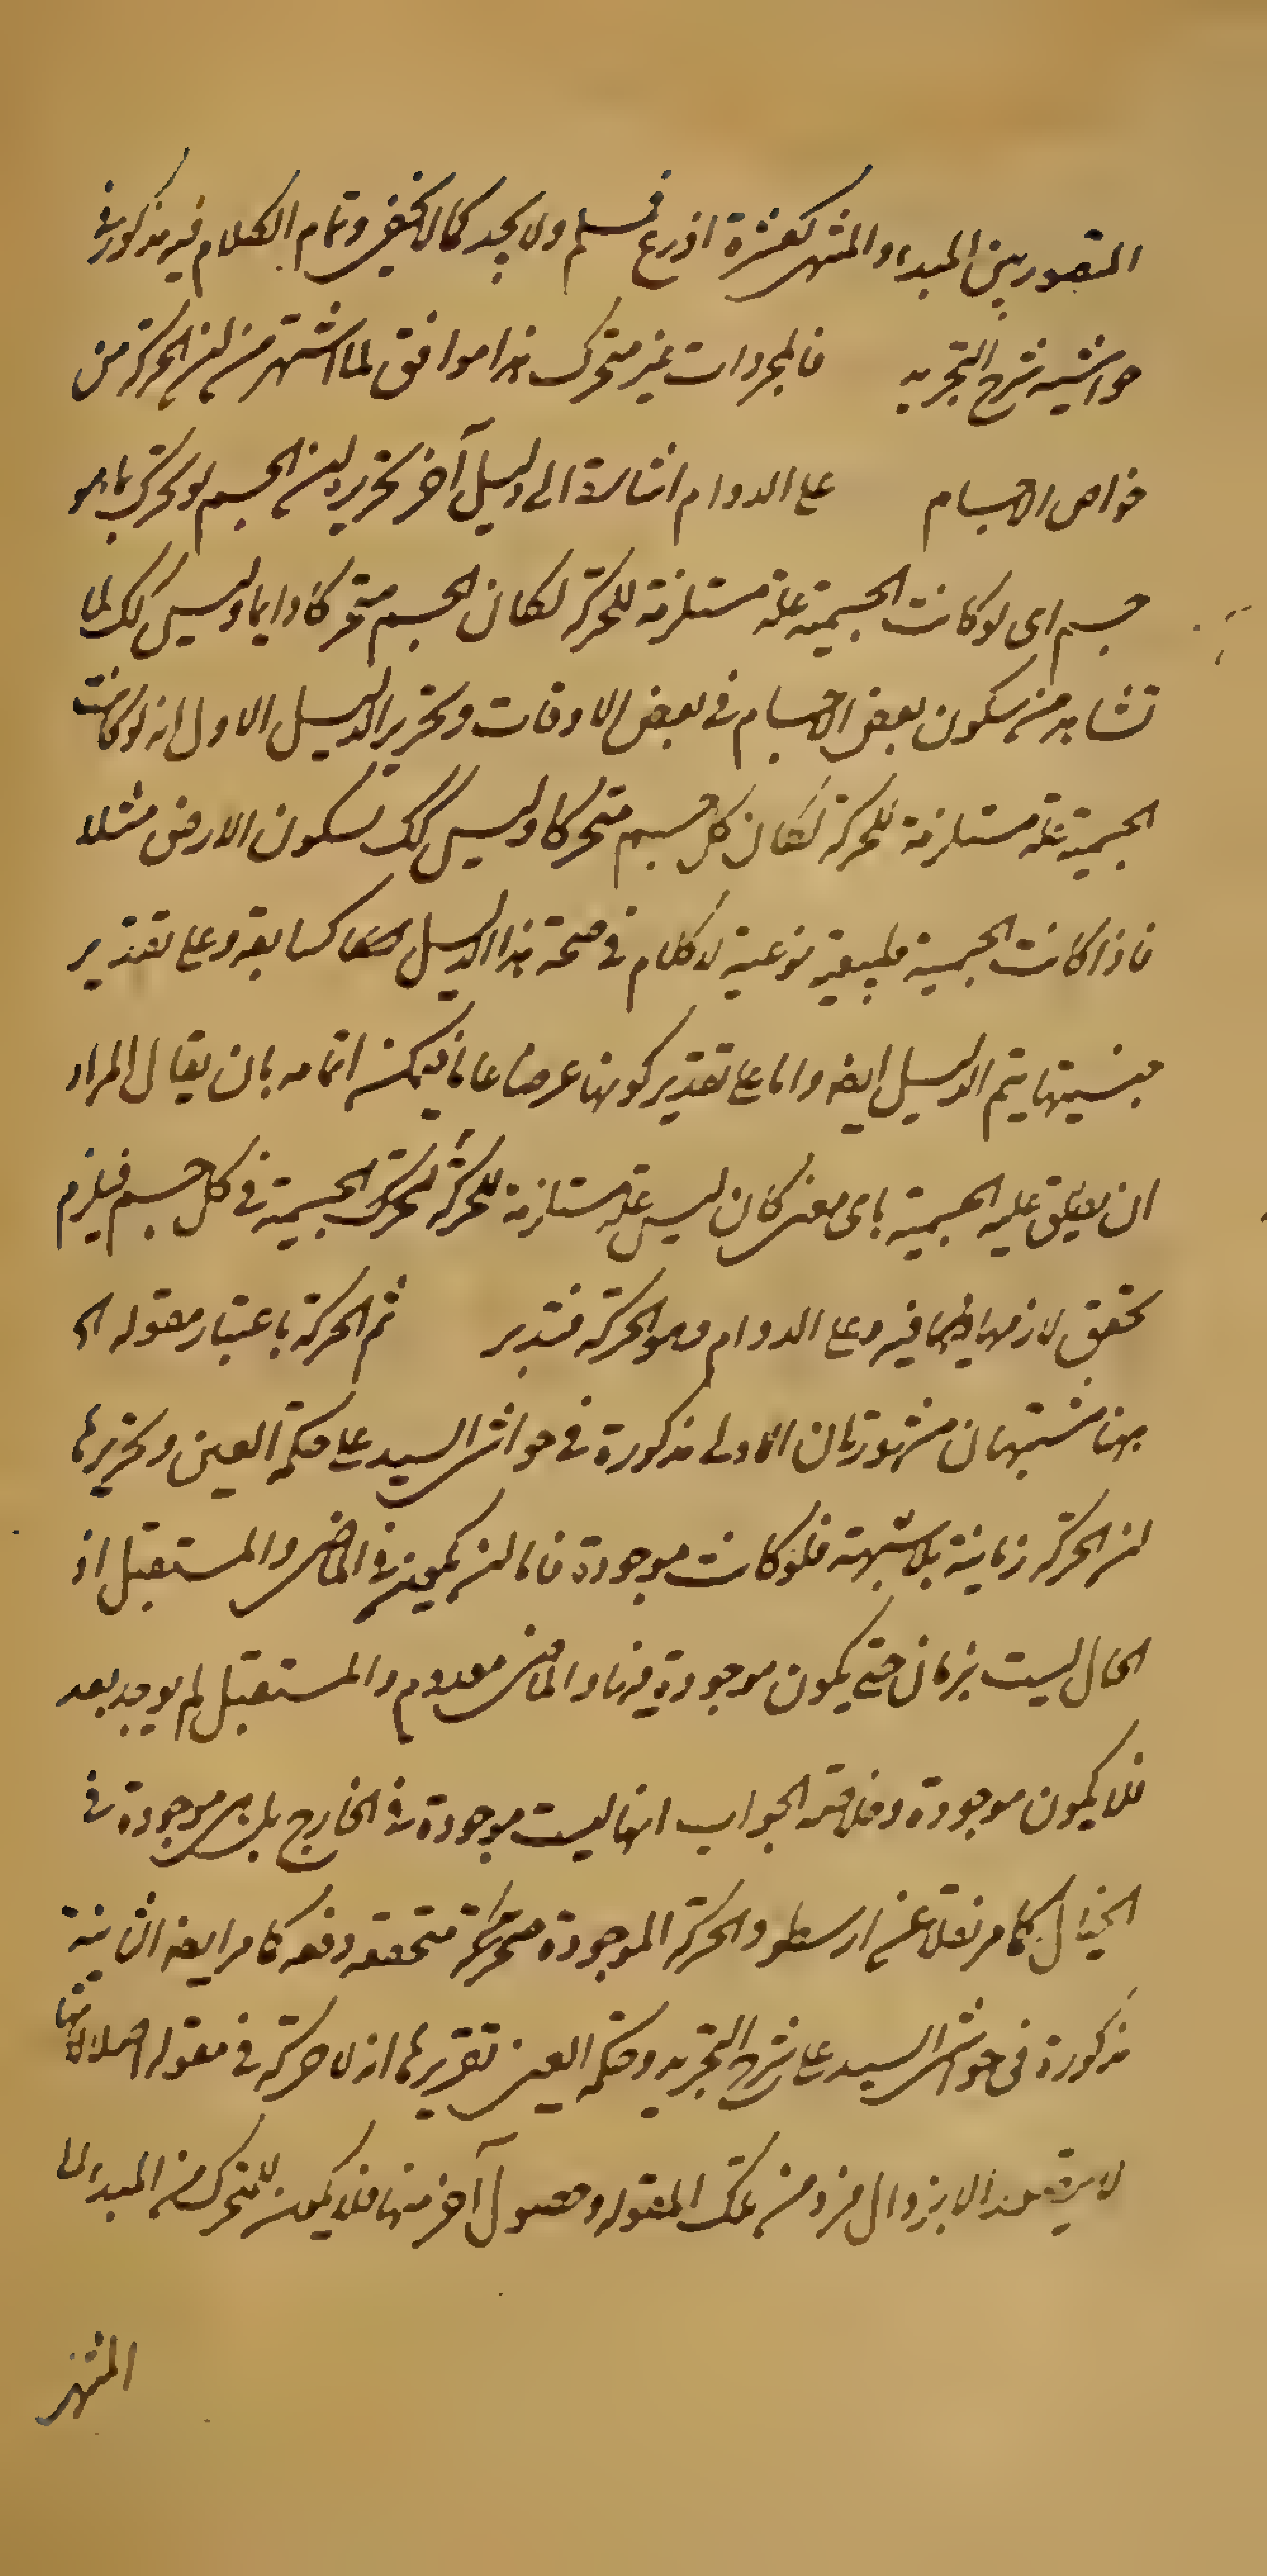 المتصور بين المبداء والمنتهى كعشرة اذرع فمسلم ولا يجد كما لا يخفى وتمام الكلام فيه مذكور فى
حواشيه شرح التجريد فالمجردات غير متحرك هذا موافق لما اشتهر من ان الحركة من
خواص الاجسام على الدوام اشارة الى دليل آخر تحريره ان الجسم لو تحرك بما هو
جسم اى لو كانت الجسمية علة مستلزمة للحركة لكان الجسم متحركا دايما وليس كك لما
تشاهد من سكون بعض الاجسام فى بعض الاوقات وتحرير الدليل الاول انه لو كانت
الجسمية علة مستلزمة للحركة لكان كل جسم متحركا وليس كك لسكون الارض مثلا
فاذا كانت الجسمية طبيعية نوعية لا كلام فى صحة هذا الدليل كسابقه وعلى تقدير
جنسيتها يتم الدليل ايضا واما على تقدير كونها عرضا عاما فيمكن اتمامه بان يقال المراد
ان يطلق عليه الجسمية باى معنى كان ليس علة مستلزمة للحركة لتحرك الجسمية فى كل جسم فيلزم
تحقق لازمها ايضا فيه وعلى الدوام وهو الحركة فتدبر ثم الحركة باعتبار مقوله الخ
ههنا شبهتان مشهورتان الاولى مذكورة فى حواشى السيد على حكمة العين وتحريرها
ان الحركة زمانية بلا شبهة فلو كانت موجودة فاما ان يكون فى الماضى والمستقبل اذ
الحال ليست بزمان حتى يكون موجودة فيها والماضى معدوم والمستقبل لم يوجد بعد
فلا يكون موجودة وخلاصة الجواب انها ليست موجودة فى الخارج بل هى موجودة فى
الخيال كما مر نقلا عن ارسطو والحركة الموجودة متحركة متحققه دفعه كما مر ايضا الثانية
مذكورة فى حواشى السيد على شرح التجريد وحكمة العين تقريرها انه لا حركة فى مقوله اصلا لانها
لا يتصور الا بزوال فرد من تلك المقوله وحصول آخر منها فلا يكون للمتحرك من المبدا الى
المنتهى